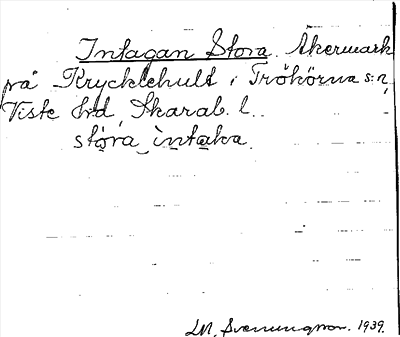 Intagan Stora. Åkermark
på Krycklehult i Tröhörna s:n,
Viste hd, Skarab. l..
stóra ìntaka.
LM. Svenungson. 1939.